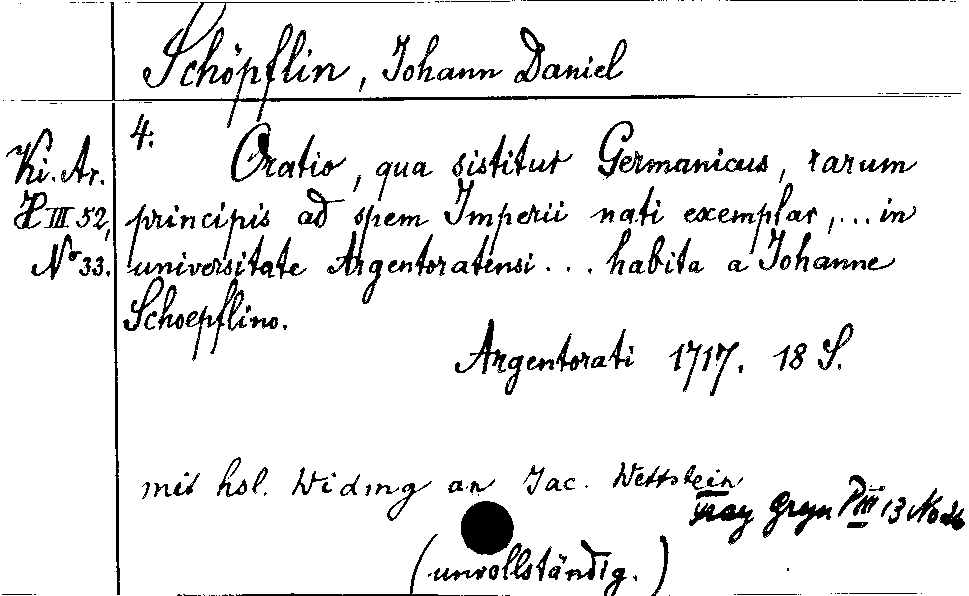 Schöpflin, Johann Daniel
4.
Ki. Ar.
H III 52,
No 33.
Oratio, qua sistitur Germanicus, rarum
principis ad spem Imperii nati exemplar, ... in
universitate Argentoratensi ... habita a Johanne
Schoepflino.
Argentorati 1717. 18 S.
mit hsl. Widmg an Jac. Wettstein
Frey Gryn P III 13 No 26
(unvollständig.)